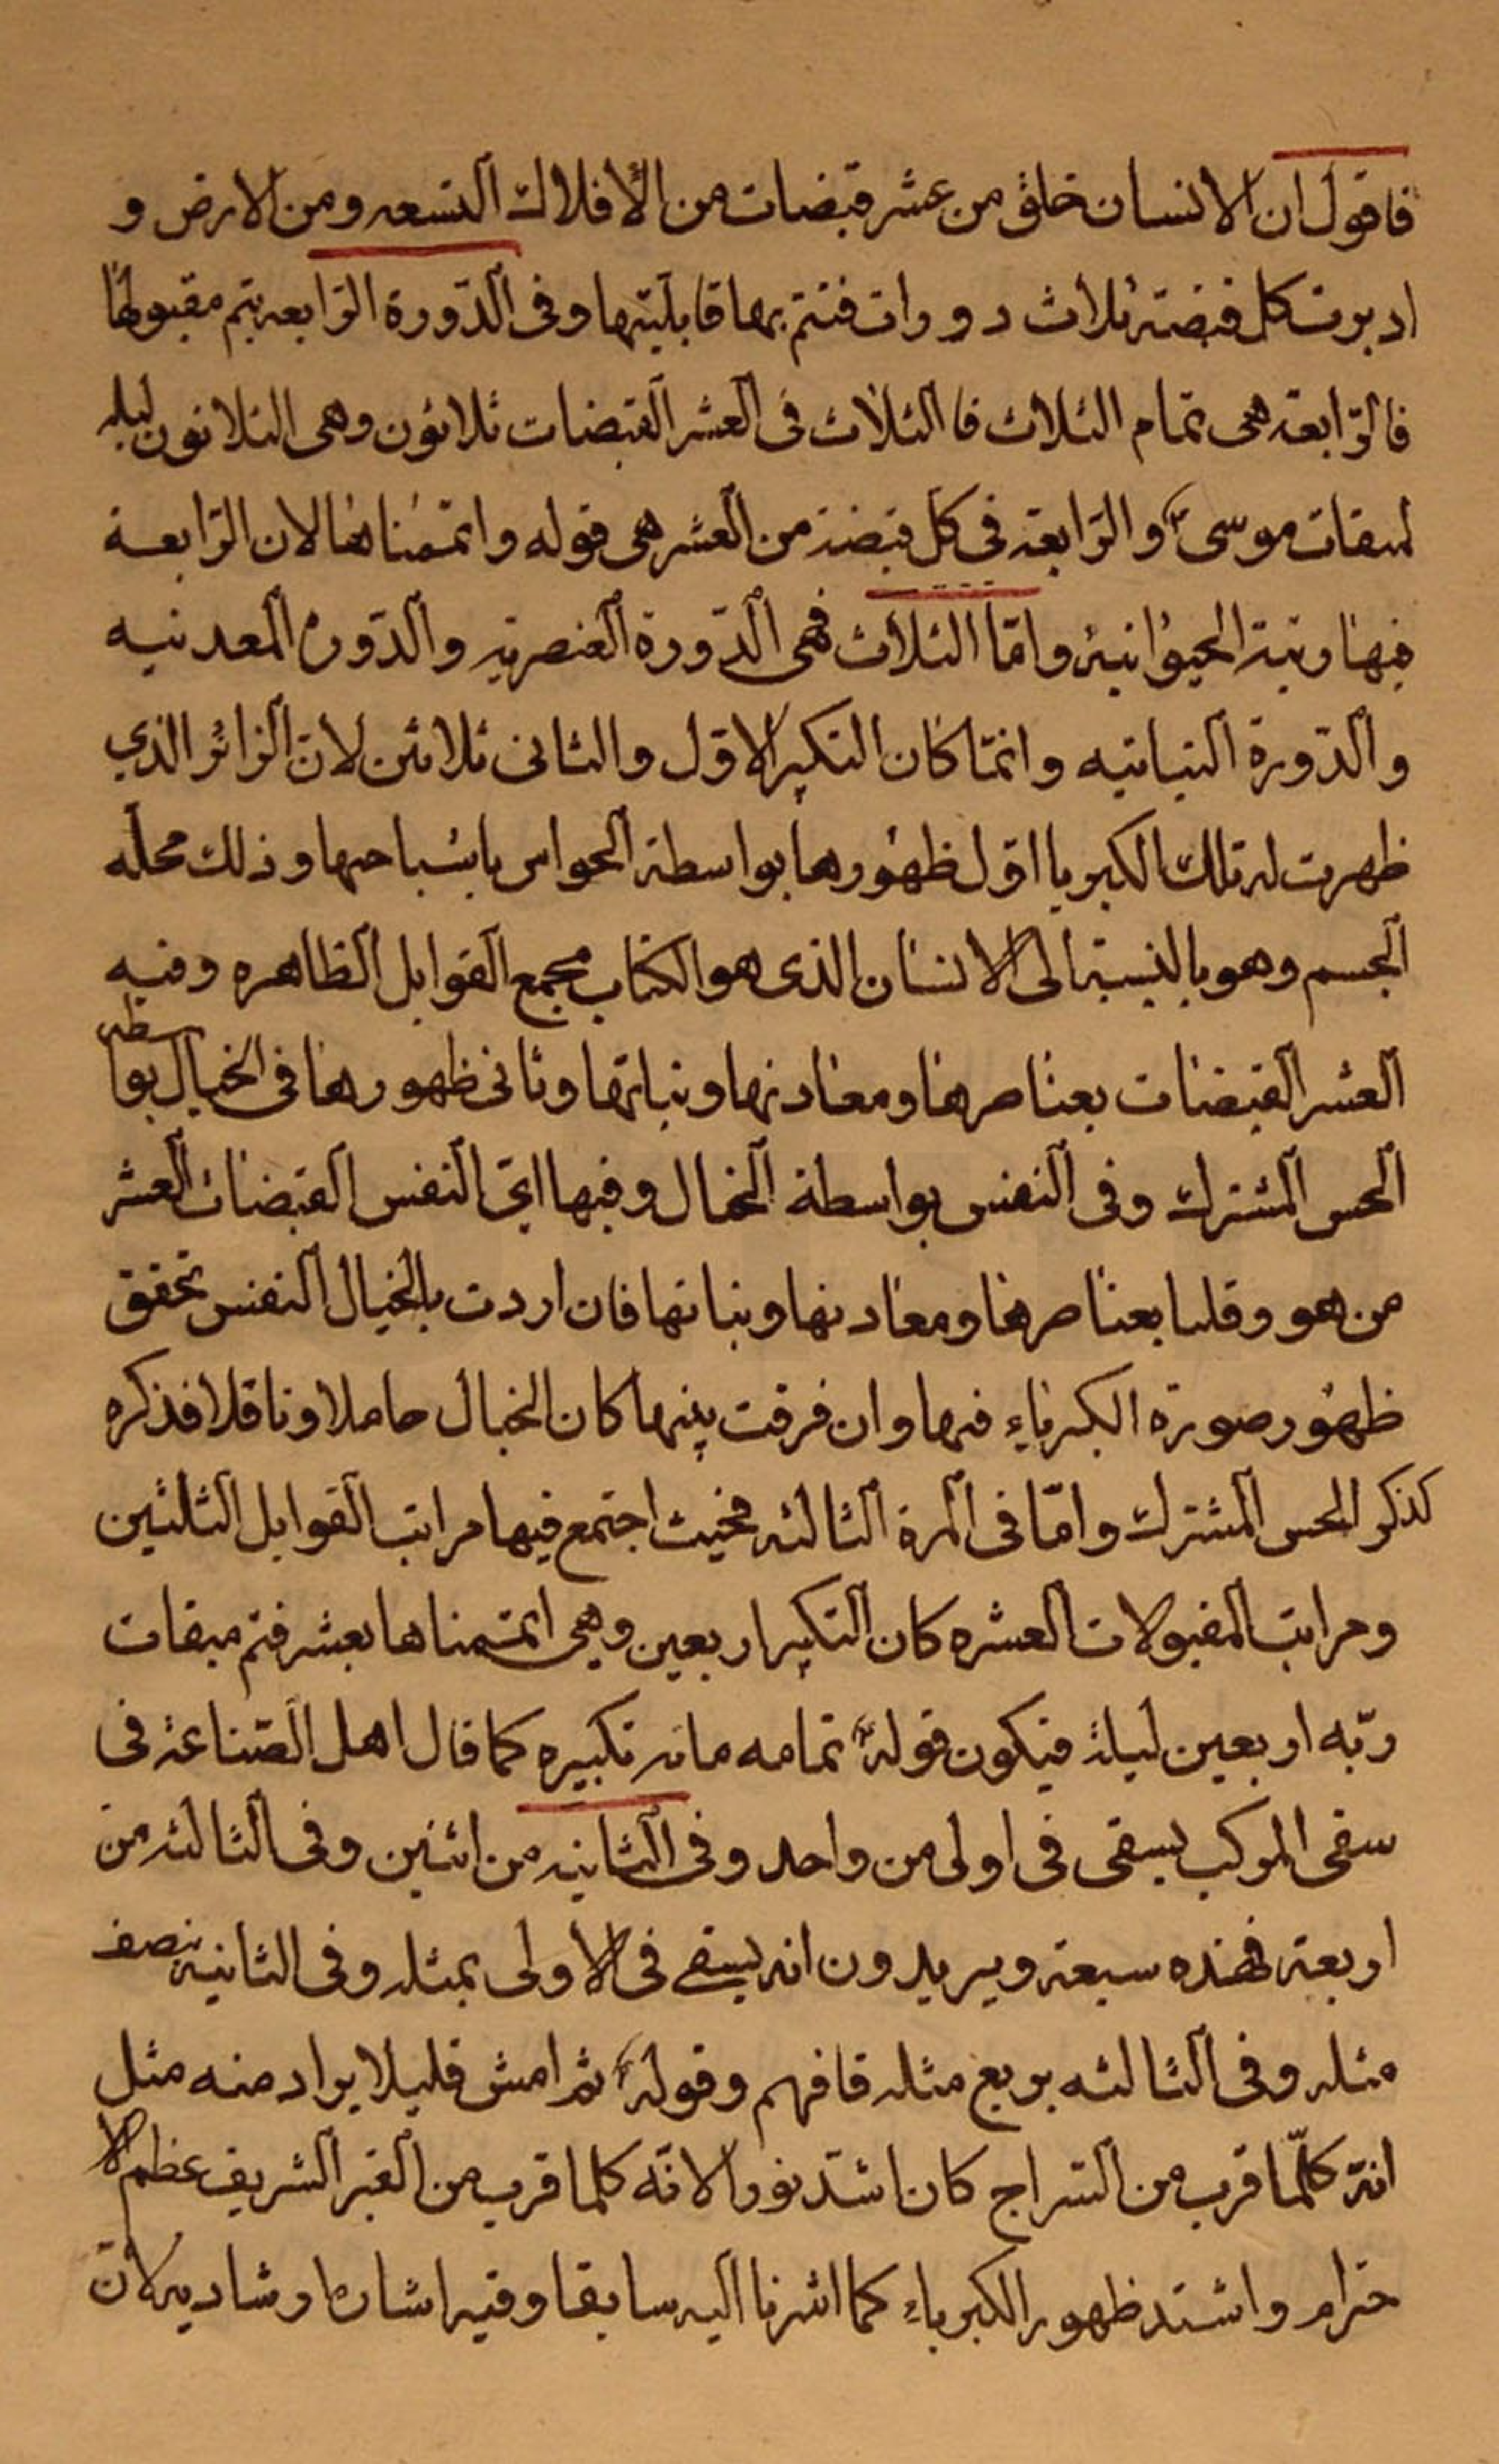 فاقول ان الانسان خلق من عشر قبضات من الأفلاك التسعه ومن الارض و
اديرت كل قبضة ثلاث دورات فتتم بها قابليتها وفى الدّورة الرّابعه يتم مقبولها
فالرّابعة هى تمام الثلاث فالثلاث فى العشر القبضات ثلاثون وهى الثلاثون ليله
لميقات موسىؑ والرّابعة فى كل قبضة من العشر هى قوله واتممناها لان الرّابعة
فيها رتبة الحيوانية وامّا الثلاث فهى الدّورة العنصريه والدّوره المعدنيه
والدّورة النباتيه وانمّا كان التكبير الاوّل والثانى ثلاثين لانّ الزائر الذي
ظهرت له تلك الكبريا اوّل ظهورها بواسطة الحواس باشباحها وذلك محلّه
الجسم وهو بالنسبة الى الانسان الذى هو الكتاب مجمع القوابل الظاهره وفيه
العشر القبضات بعناصرها ومعادنها ونباتها وثانى ظهورها فى الخيال بواسطه
الحس المشترك وفى النفس بواسطة الخيال وفيها اى النفس القبضات العشر
من هو وقلبا بعناصرها ومعادنها ونباتها فان اردت بالخيال النفس تحقق
ظهور صورة الكبرياء فيها وان فرقت بينهما كان الخيال حاملا وناقلا فذكره
كذكر الحس المشترك وامّا فى المرة الثالثه فحيث اجتمع فيها مراتب القوابل الثلثين
ومراتب المقبولات العشره كان التكبير اربعين وهى اتممناها بعشر فتم ميقات
ربّه اربعين ليلة فيكون قولهؑ تمامه مائه تكبيره كما قال اهل الصّناعة فى
سقى المركب يسقى فى اولى من واحد وفى الثانيه من اثنين وفى الثالثه من
اربعة فهذه سبعة ويريدون انه يسقى فى الاولى بمثله وفى الثانية بنصف
مثله وفى الثالثه بربع مثله فافهم وقولهؑ ثم امش قليلا يراد منه مثل
انّه كلّما قرب من السّراج كان اشدّ نورا لانّه كلما قرب من القبر الشريف عظم الا
حترام واشتد ظهور الكبرياء كما اشرنا اليه سابقا وفيه اشارة ارشاديه لانّ